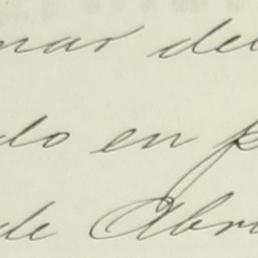 mar del
do en p
de Abri